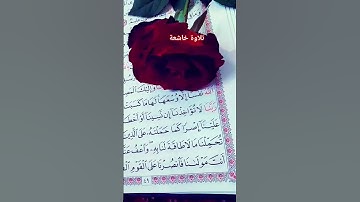 تلاوة خاشعة
نَفْسًا إِلَّا وُسْعَهَا لَهَا مَا كَسَبَتْ
لَا تُؤَاخِذْنَا إِن نَّسِينَا أَوْ أَخْطَ
عَلَيْنَا إِصْرًا كَمَا حَمَلْتَهُ عَلَى الَّذِينَ
تُحَمِّلْنَا مَا لَا طَاقَةَ لَنَا بِهِ وَاعْفُ عَنَّا
أَنتَ مَوْلَانَا فَانصُرْنَا عَلَى الْقَوْمِ
٤٩